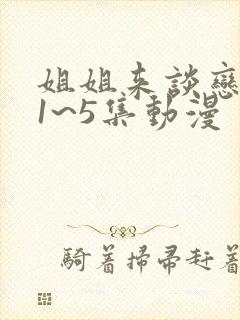 姐姐来談戀
1~5集動漫
騎着掃帚赶着